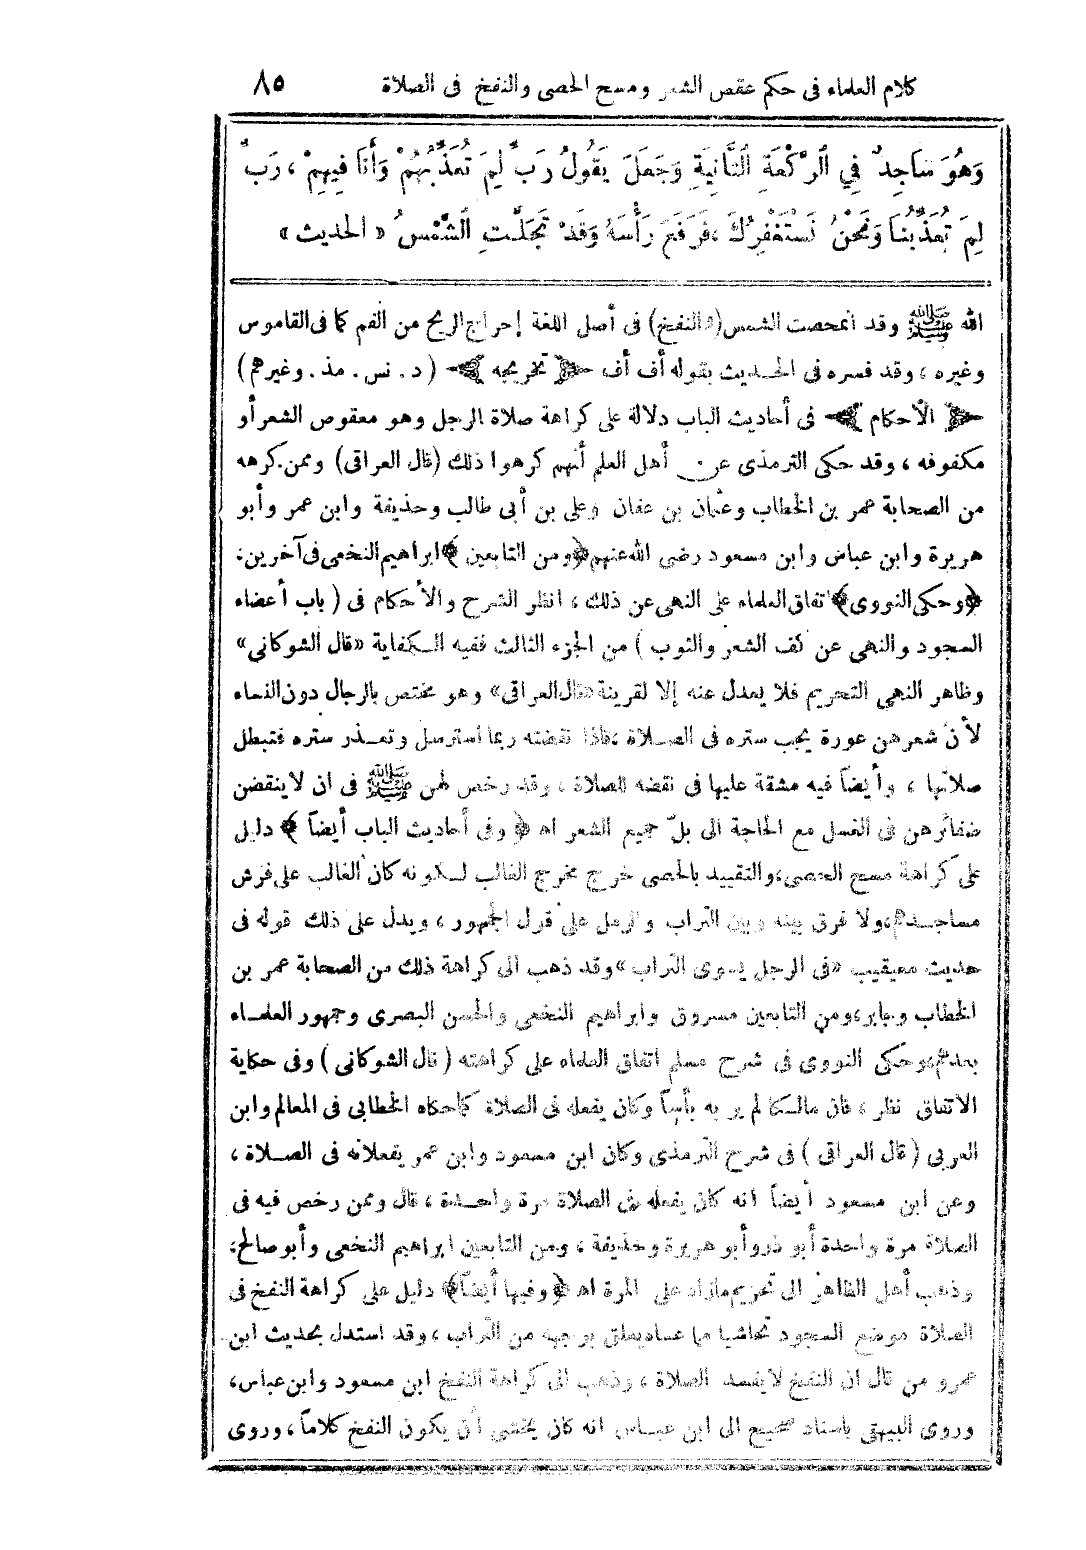 كلام العلماء فى حكم عقص الشعر ومسح الحصى والنفخ فى الصلاة ٨٥
وَهُوَ سَاجِدٌ فِي ٱلرَّكْعَةِ ٱلثَّانِيَةِ وَجَعَلَ يَقُولُ رَبِّ لِمَ تُعَذِّبُهُمْ وَأَنَا فِيهِمْ ، رَبِّ
لِمَ تُعَذِّبُنَا وَنَحْنُ نَسْتَغْفِرُكَ ، فَرَفَعَ رَأْسَهُ وَقَدْ تَجَلَّتِ ٱلشَّمْسُ « الحديث »
الله ﷺ وقد انمحصت الشمس (والنفخ) فى أصل اللغة إخراج الريح من الفم كما فى القاموس
وغيره ، وقد فسره فى الحديث بقوله أف أف ﴿ تخريجه ﴾ (د . نس . مذ . وغيرهم)
﴿ الأحكام ﴾ فى أحاديث الباب دلالة على كراهة صلاة الرجل وهو معقوص الشعر أو
مكفوفه ، وقد حكى الترمذى عن أهل العلم أنهم كرهوا ذلك (قال العراقى) وممن كرهه
من الصحابة عمر بن الخطاب وعثمان بن عفان وعلى بن أبى طالب وحذيفة وابن عمر وأبو
هريرة وابن عباس وابن مسعود رضى الله عنهم ﴿ومن التابعين﴾ ابراهيم النخعى فى آخرين ،
﴿وحكى النووى﴾ اتفاق العلماء على النهى عن ذلك ، انظر الشرح والأحكام فى ( باب أعضاء
السجود والنهى عن كف الشعر والثوب ) من الجزء الثالث ففيه الكفاية «قال الشوكانى»
وظاهر النهى التحريم فلا يعدل عنه إلا لقرينة «قال العراقى» وهو مختص بالرجال دون النساء
لأن شعرهن عورة يجب ستره فى الصلاة ، فاذا نقضته ربما استرسل وتعذر ستره فتبطل
صلاتها ، وأيضاً فيه مشقة عليها فى نقضه للصلاة ، وقد رخص لهن ﷺ فى ان لا ينقضن
ضفائرهن فى الغسل مع الحاجة الى بلّ جميع الشعر اهـ ﴿ وفى أحاديث الباب أيضاً ﴾ دليل
على كراهة مسح الحصى ، والتقييد بالحصى خرج مخرج الغالب لكونه كان الغالب على فرش
مساجدهم ، ولا فرق بينه وبين التراب والرمل على قول الجمهور ، ويدل على ذلك قوله فى
حديث معيقيب «فى الرجل يسوى التراب» وقد ذهب الى كراهة ذلك من الصحابة عمر بن
الخطاب وجابر ، ومن التابعين مسروق وابراهيم النخعى والحسن البصرى وجمهور العلماء
بعدهم ، وحكى النووى فى شرح مسلم اتفاق العلماء على كراهته ( قال الشوكانى ) وفى حكاية
الاتفاق نظر ، فان مالكا لم ير به بأساً وكان يفعله فى الصلاة كما حكاه الخطابى فى المعالم وابن
العربى ( قال العراقى ) فى شرح الترمذى وكان ابن مسعود وابن عمر يفعلانه فى الصلاة ،
وعن ابن مسعود أيضاً انه كان يفعله فى الصلاة مرة واحدة ، قال وممن رخص فيه فى
الصلاة مرة واحدة أبو ذر وأبو هريرة وحذيفة ، ومن التابعين ابراهيم النخعى وأبو صالح ،
وذهب أهل الظاهر الى تحريم مازاد على المرة اهـ ﴿وفيها أيضاً﴾ دليل على كراهة النفخ فى
الصلاة موضع السجود تحاشيا مما عساه يعلق بوجهه من التراب ، وقد استدل بحديث ابن
عمرو من قال ان النفخ لا يفسد الصلاة ، وذهب الى كراهة النفخ ابن مسعود وابن عباس ،
وروى البيهقى باسناد صحيح الى ابن عباس انه كان يخشى أن يكون النفخ كلاماً ، وروى